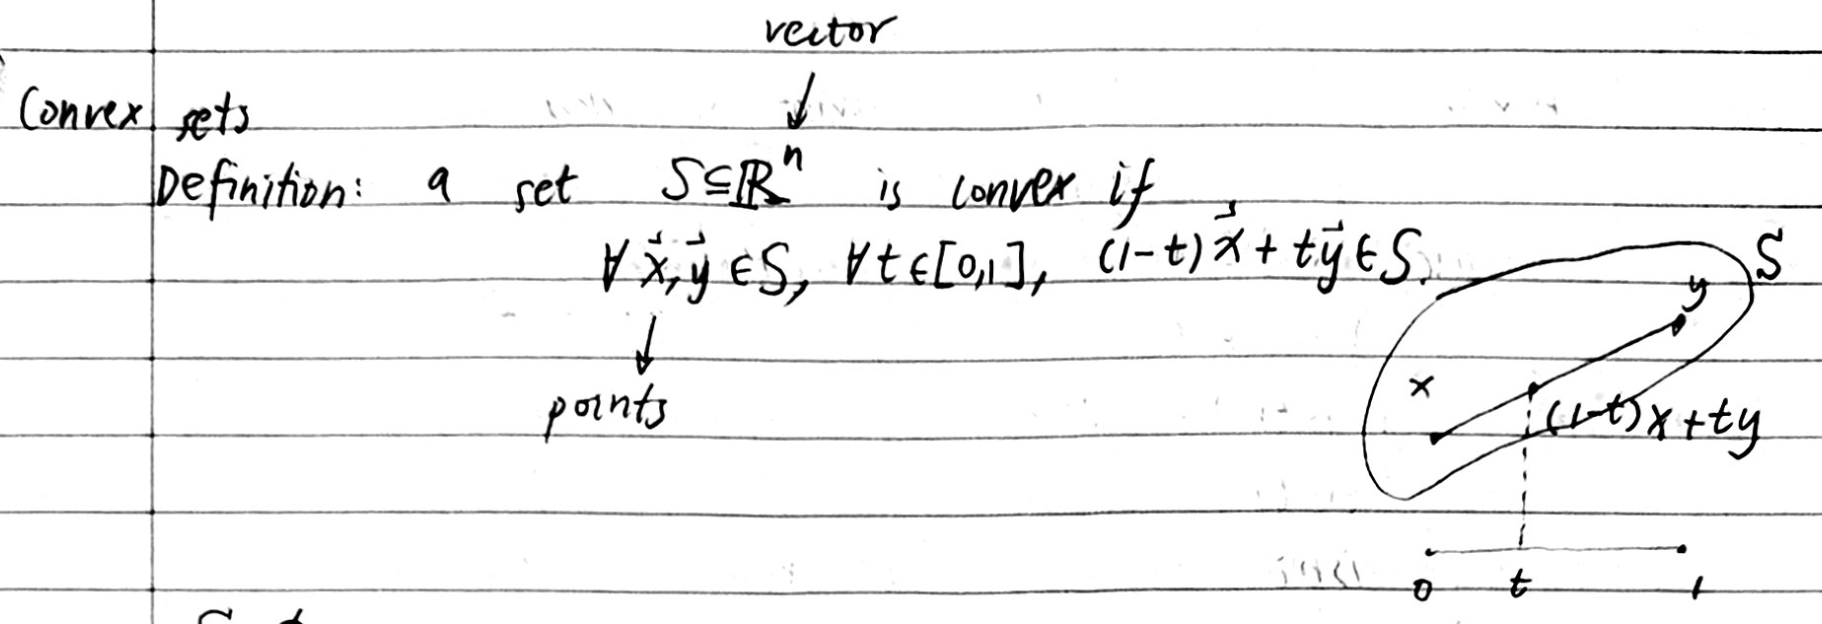 vector
Convex sets
Definition: a set S⊆ℝⁿ is convex if
∀ x⃗, y⃗ ∈ S, ∀ t ∈ [0,1], (1-t) x⃗ + t y⃗ ∈ S.
S
y
points
x
(1-t)x + ty
0 t 1